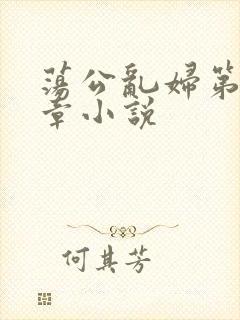 蕩公亂婦第
章小説
何其芳